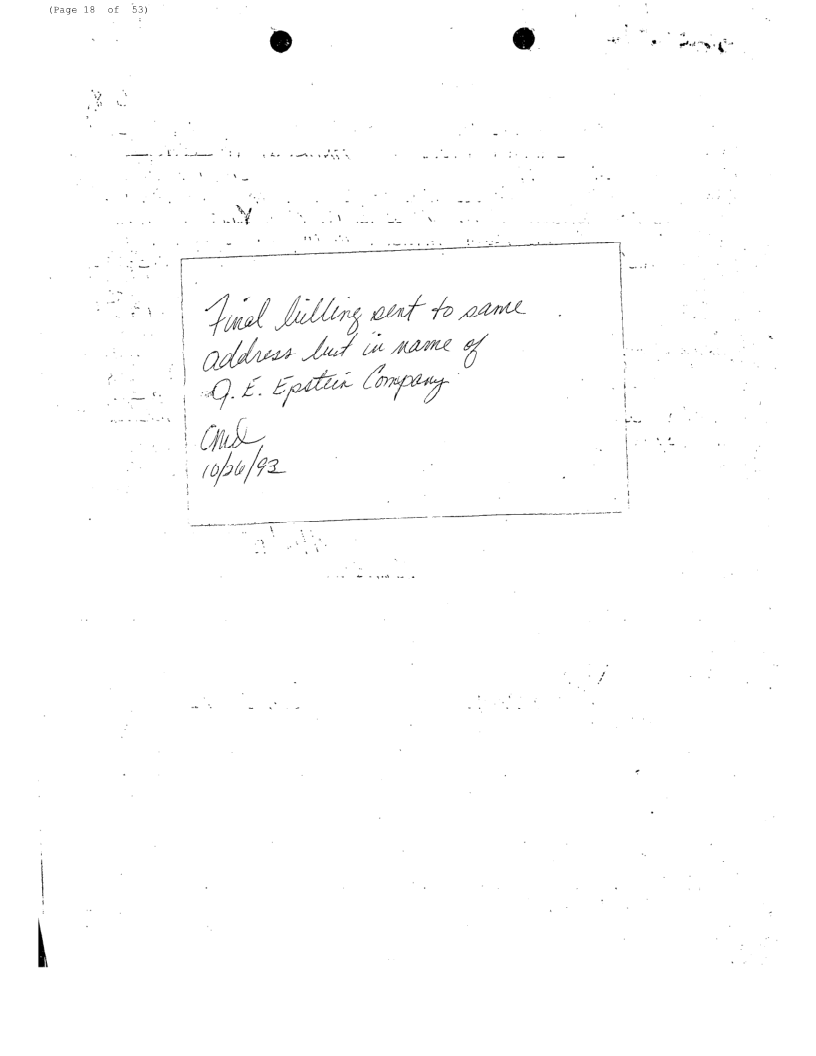 (Page 18 of 53)
Final billing sent to same
address but in name of
J. E. Epstein Company
10/26/93